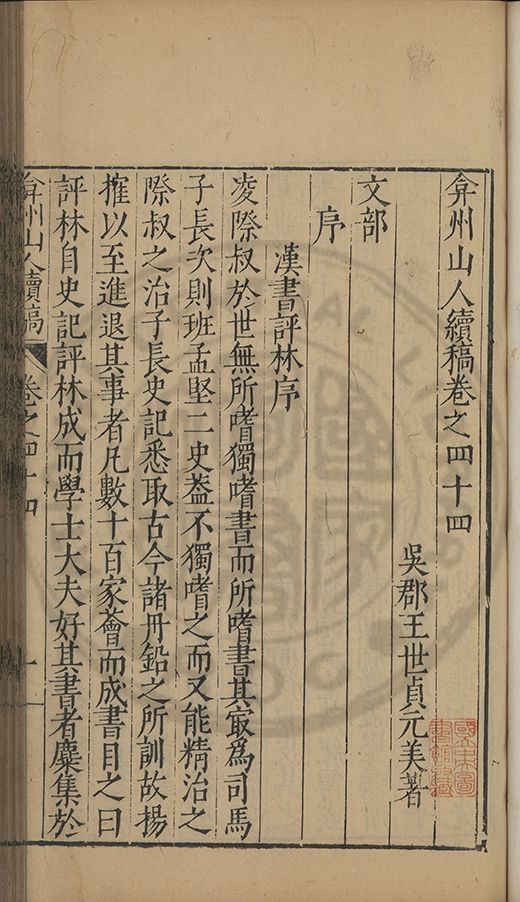 弇州山人續稿卷之四十四
吳郡王世貞元美著
文部
序
漢書評林序
凌際叔於世無所嗜獨嗜書而所嗜書其㝡為司馬
子長次則班孟堅二史葢不獨嗜之而又能精治之
際叔之治子長史記悉取古今諸丹鉛之所訓故揚
搉以至進退其事者凡數十百家薈而成書目之曰
評林自史記評林成而學士大夫好其書者麇集於
弇州山人續稿 卷之四十四 一
國立中央圖書館藏